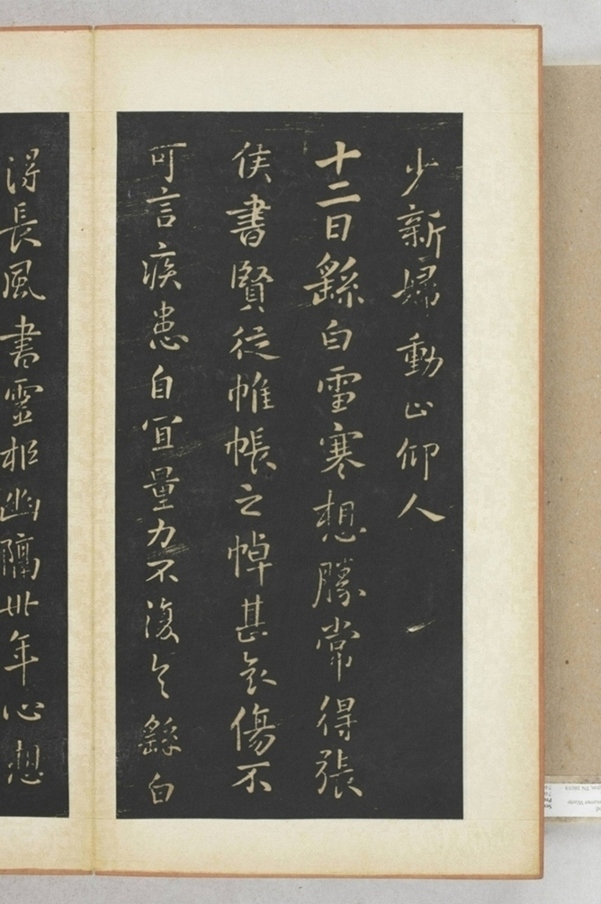 少新婦動止仰人
十二日繇白雪寒想勝常得張
侯書賢從帷帳之悼甚哀傷不
可言疾患自宜量力不復具繇白
得長風書靈柩幽隔卅年心想